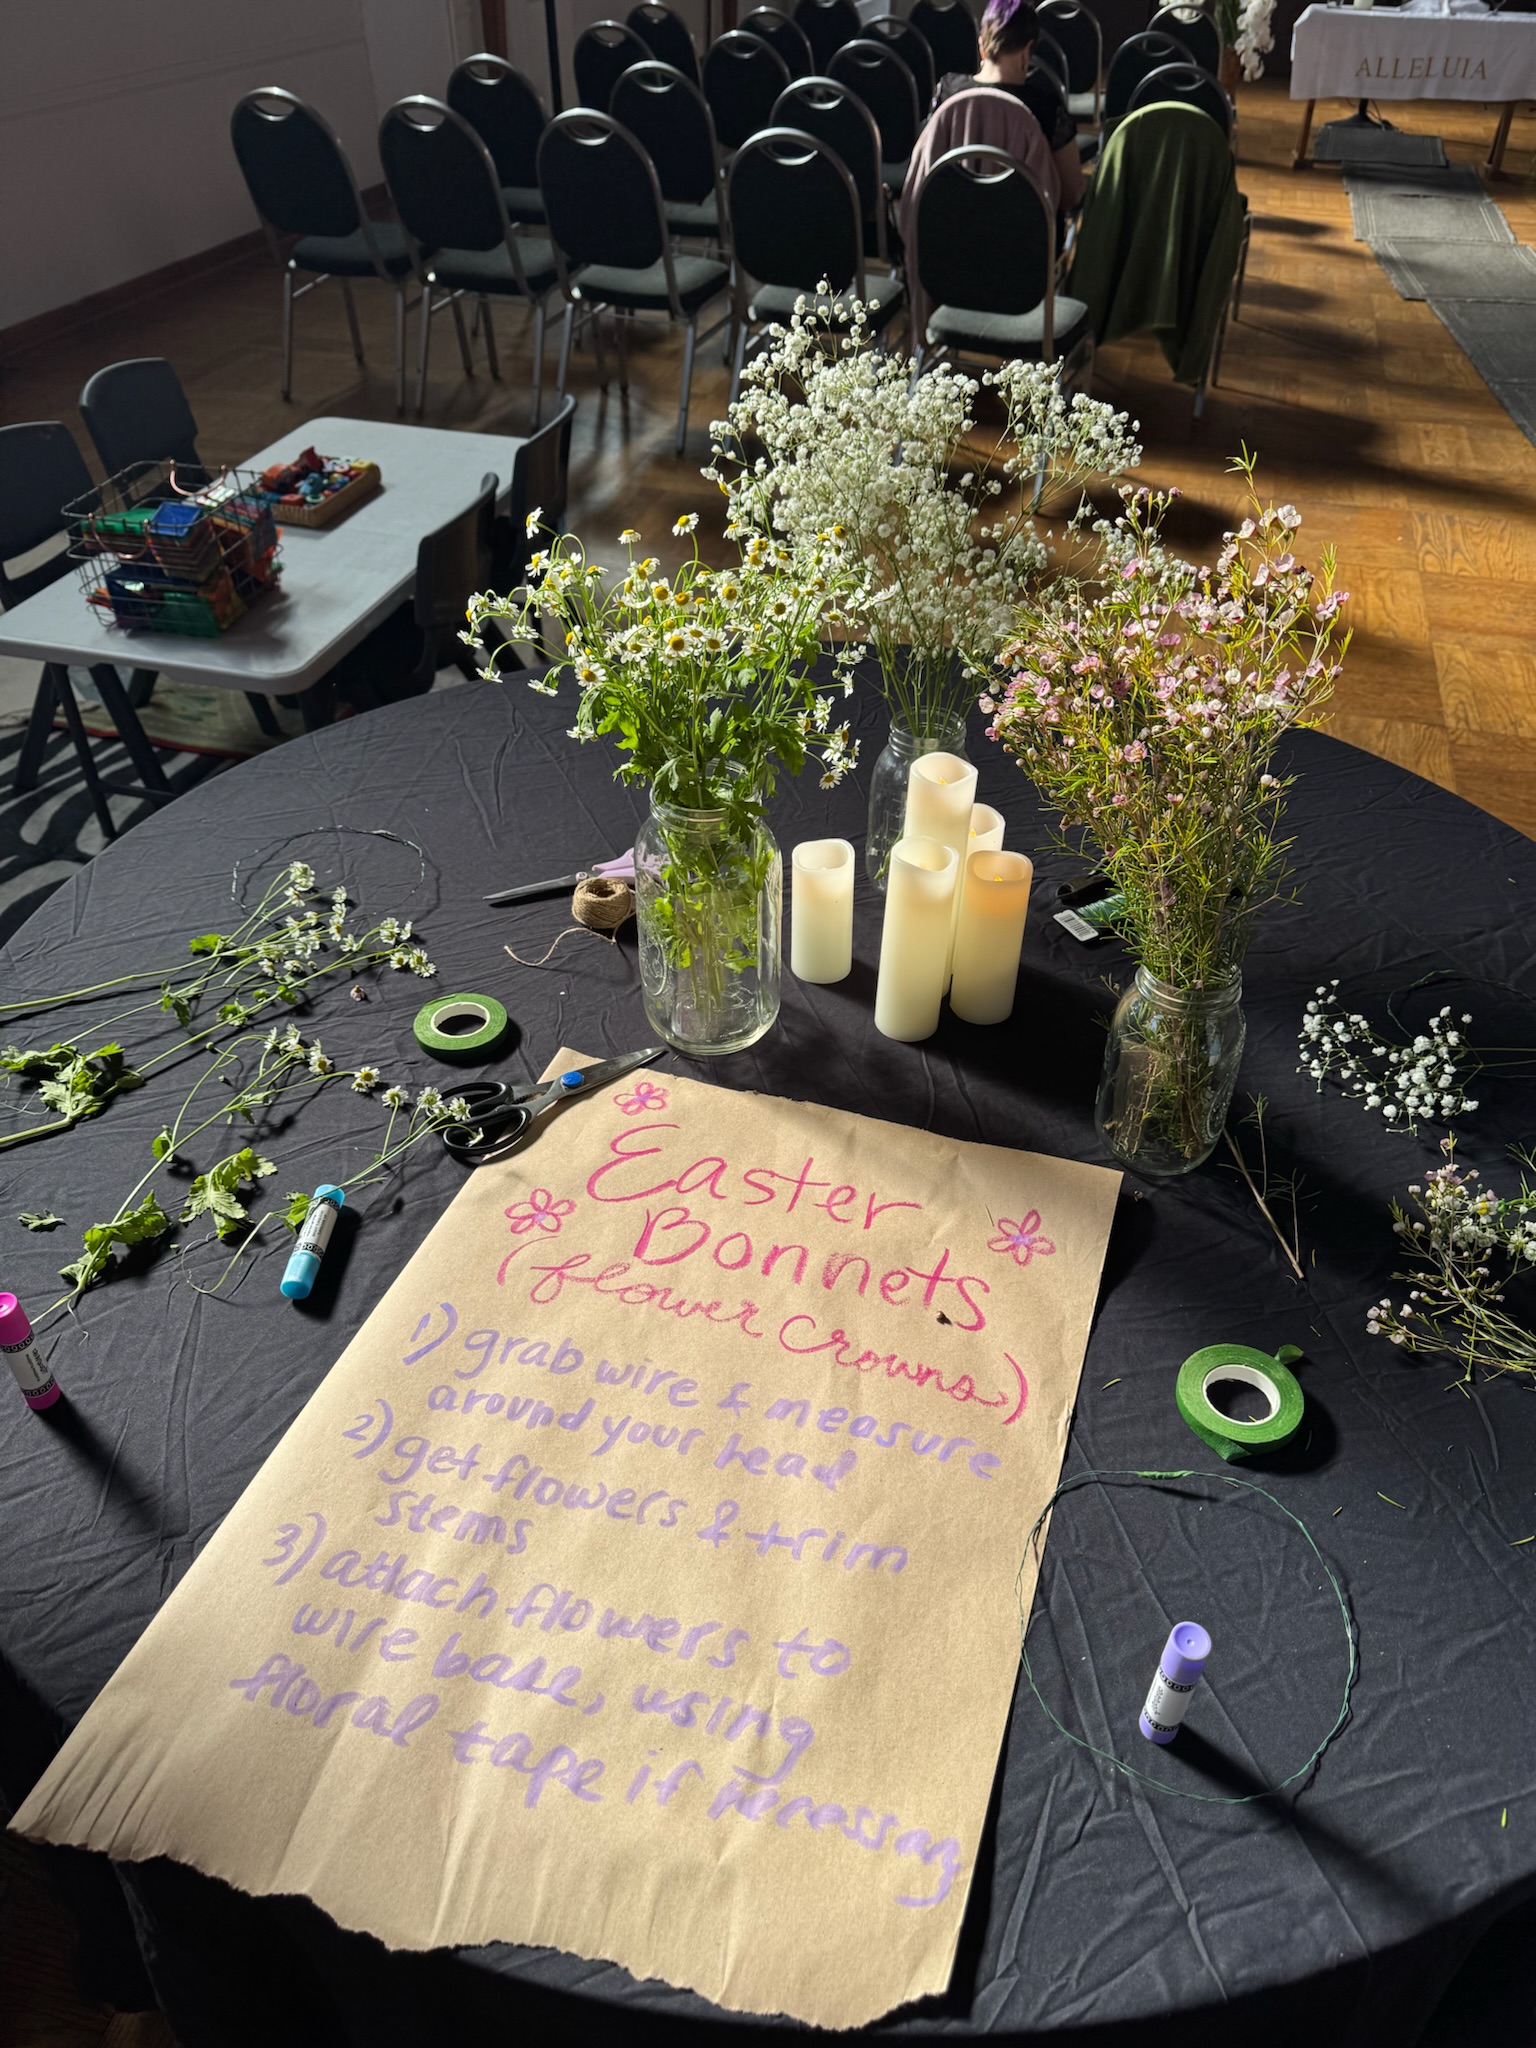 ALLELUIA
Easter
Bonnets
(flower crowns)
1) grab wire & measure
around your head
2) get flowers & trim
stems
3) attach flowers to
wire base, using
floral tape if necessary